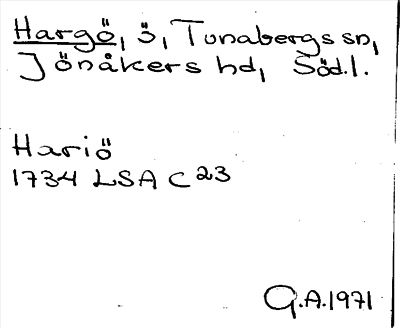 Hargö, ö, Tunabergs sn,
Jönåkers hd, Söd.l.
Hariö
1734 LSA C 23
G.A. 1971